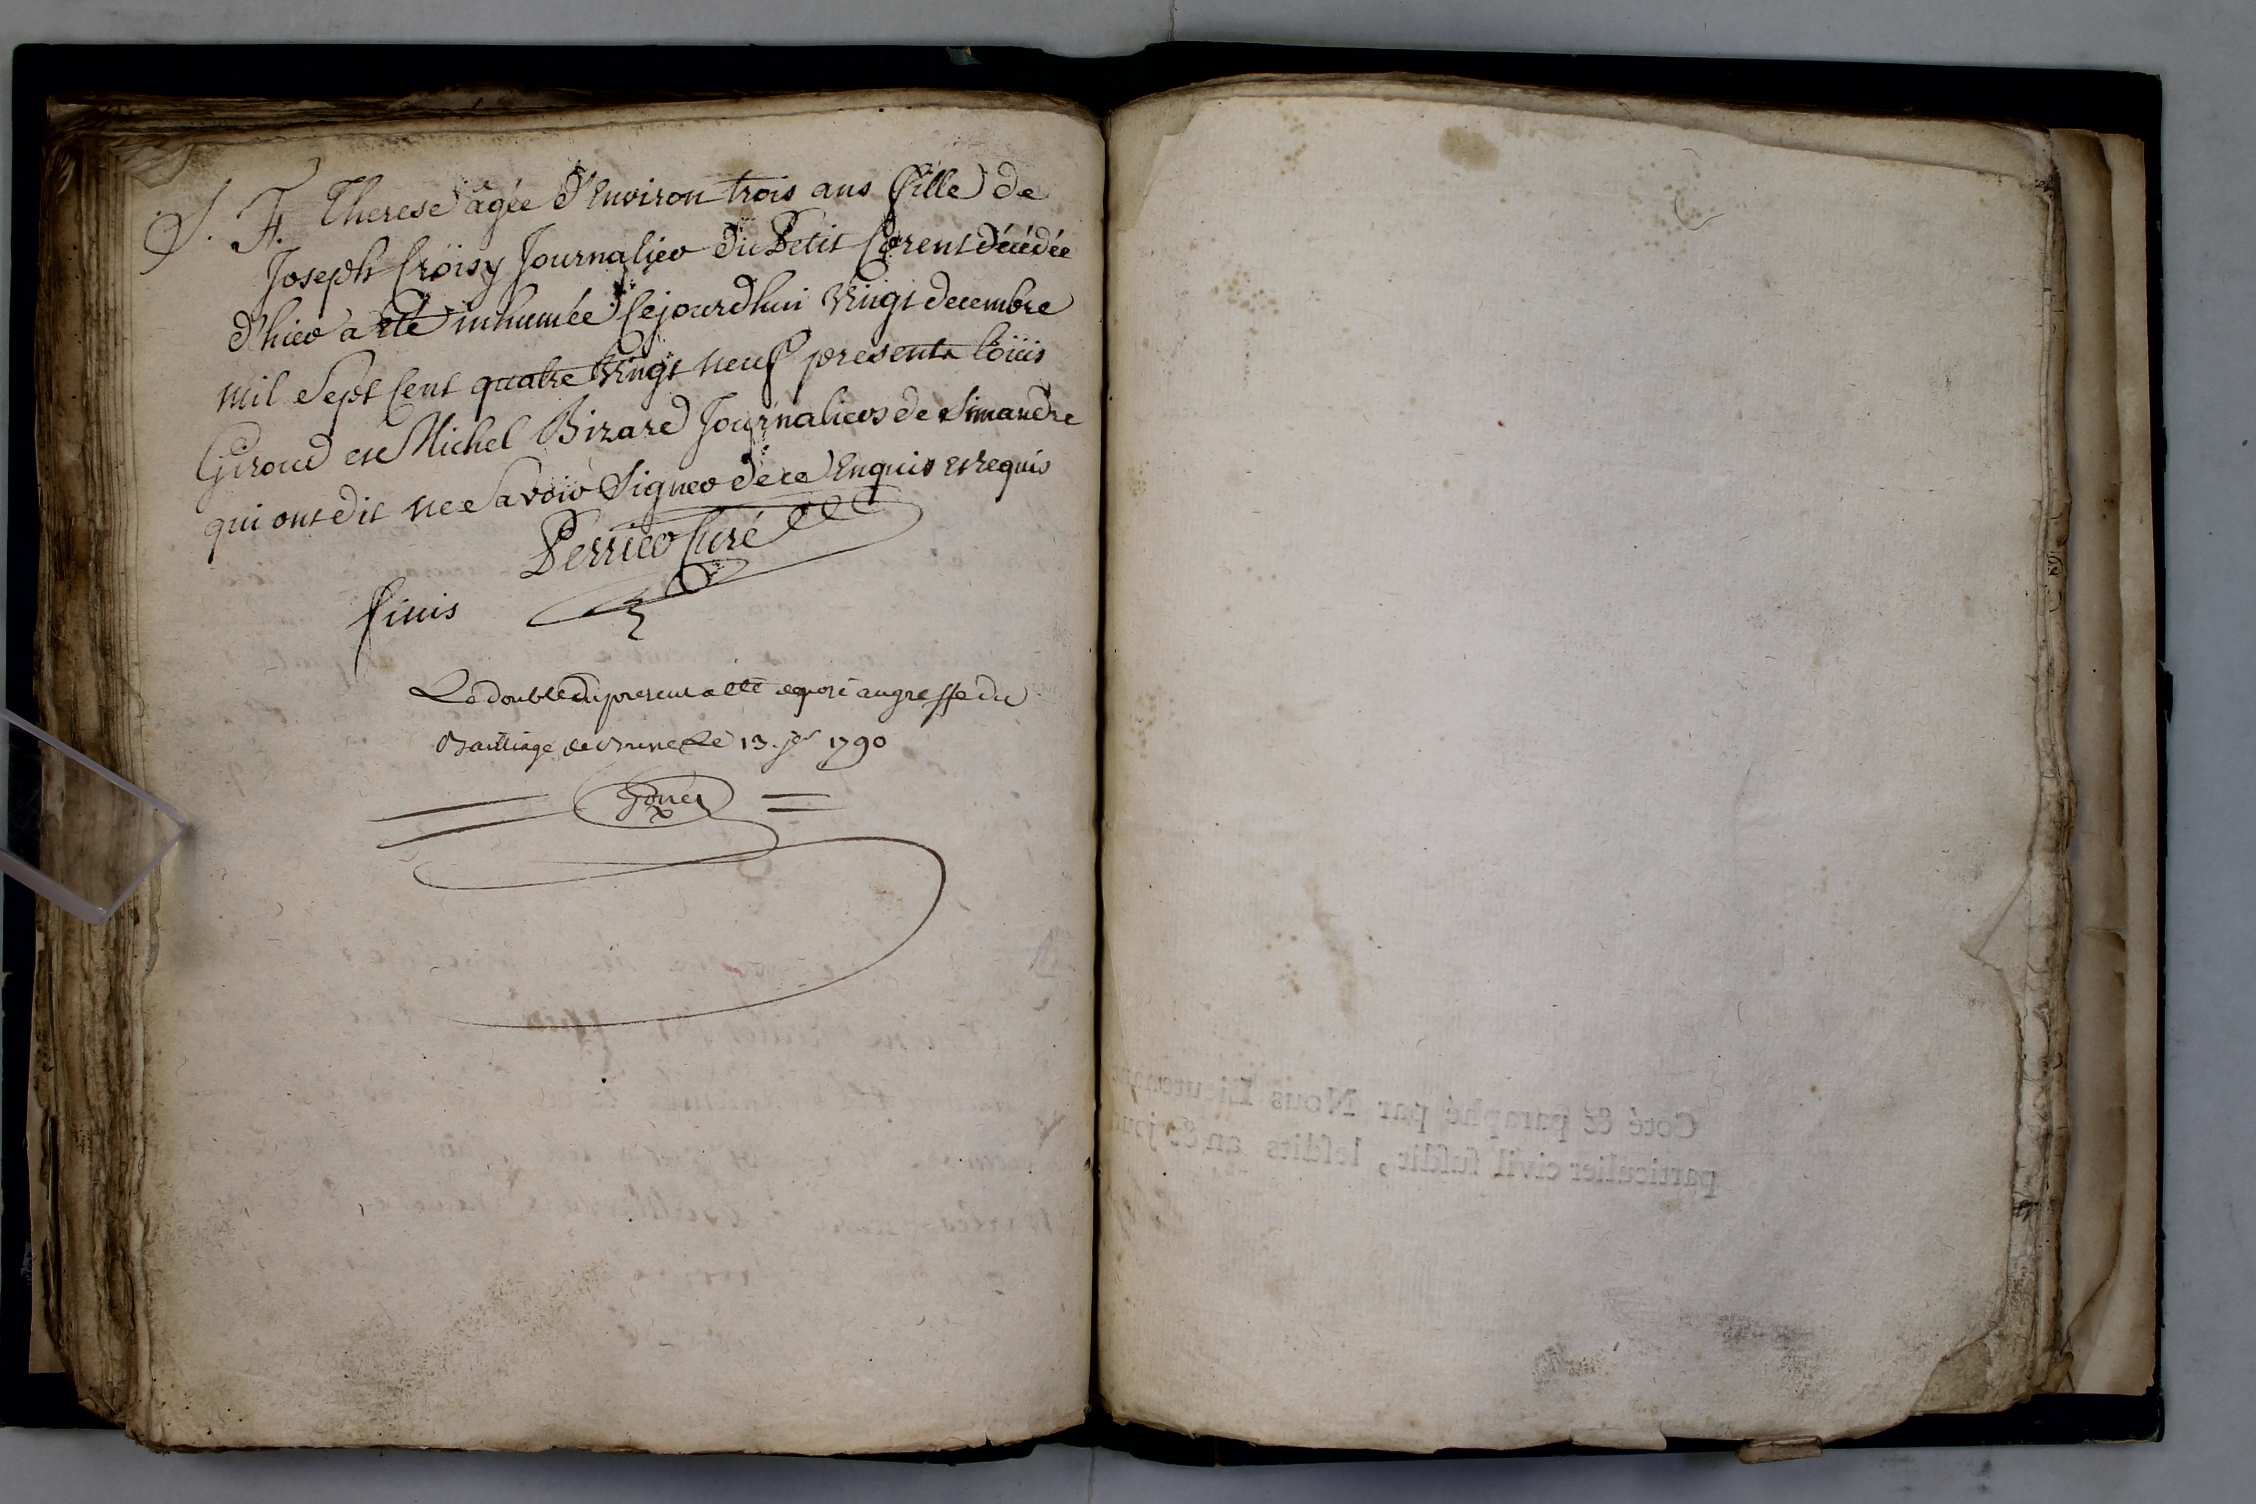 S. F. Therese âgée d'Environ trois ans fille de
Joseph Croisy Journalier du Petit Corent décédée
d'hier a été inhumée Cejourdhui vingt decembre
mil sept Cent quatre vingt neuf presents loüis
Giroud et Michel Bizard Journaliers de Simandre
qui ont dit ne Savoir Signer de ce Enquis et Requis
Perrier Curé
finis
Le double du present a été deposé au greffe du
Bailliage de Bresse Le 13. jer 1790
Coté & paraphé par Nous Lieutenant
particulier civil susdit, lesdits an & jour